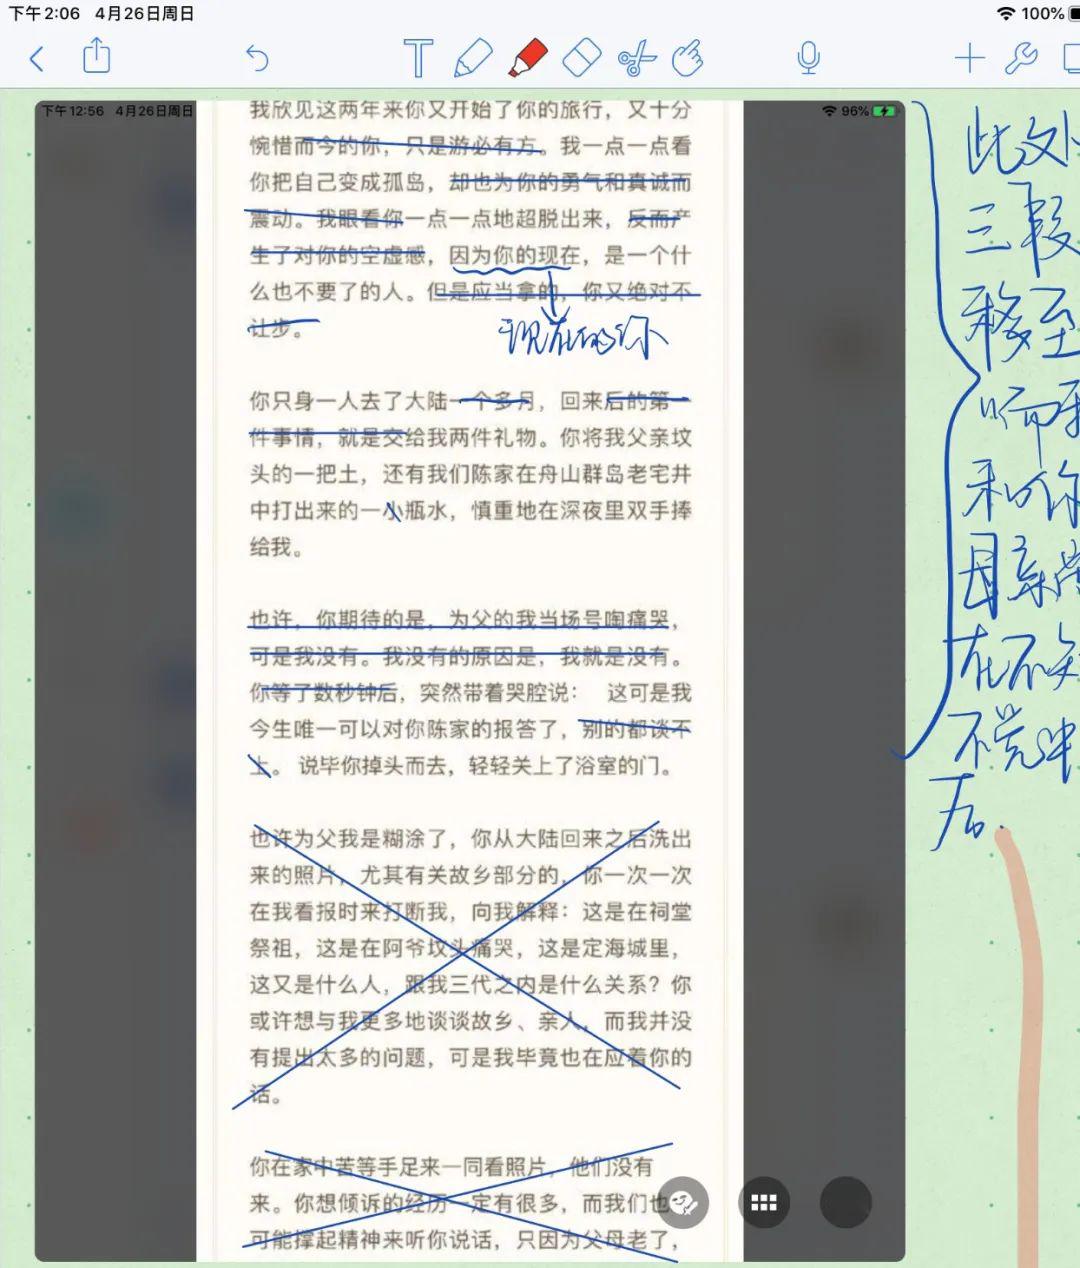 下午2:06 4月26日周日
100%
下午12:56 4月26日周日
96%
我欣见这两年来你又开始了你的旅行，又十分
惋惜而今的你，只是游必有方。我一点一点看
你把自己变成孤岛，却也为你的勇气和真诚而
震动。我眼看你一点一点地超脱出来，反而产
生了对你的空虚感，因为你的现在，是一个什
么也不要了的人。但是应当拿的，你又绝对不
让步。
现在的你
你只身一人去了大陆一个多月，回来后的第一
件事情，就是交给我两件礼物。你将我父亲坟
头的一把土，还有我们陈家在舟山群岛老宅井
中打出来的一小瓶水，慎重地在深夜里双手捧
给我。
也许，你期待的是，为父的我当场号啕痛哭，
可是我没有。我没有的原因是，我就是没有。
你等了数秒钟后，突然带着哭腔说： 这可是我
今生唯一可以对你陈家的报答了，别的都谈不
上。 说毕你掉头而去，轻轻关上了浴室的门。
也许为父我是糊涂了，你从大陆回来之后洗出
来的照片，尤其有关故乡部分的，你一次一次
在我看报时来打断我，向我解释：这是在祠堂
祭祖，这是在阿爷坟头痛哭，这是定海城里，
这又是什么人，跟我三代之内是什么关系？你
或许想与我更多地谈谈故乡、亲人，而我并没
有提出太多的问题，可是我毕竟也在应着你的
话。
你在家中苦等手足来一同看照片，他们没有
来。你想倾诉的经历一定有很多，而我们也
可能撑起精神来听你说话，只因为父母老了，
此处
三段
移至
和你
因亲
在不知
不觉中
后.